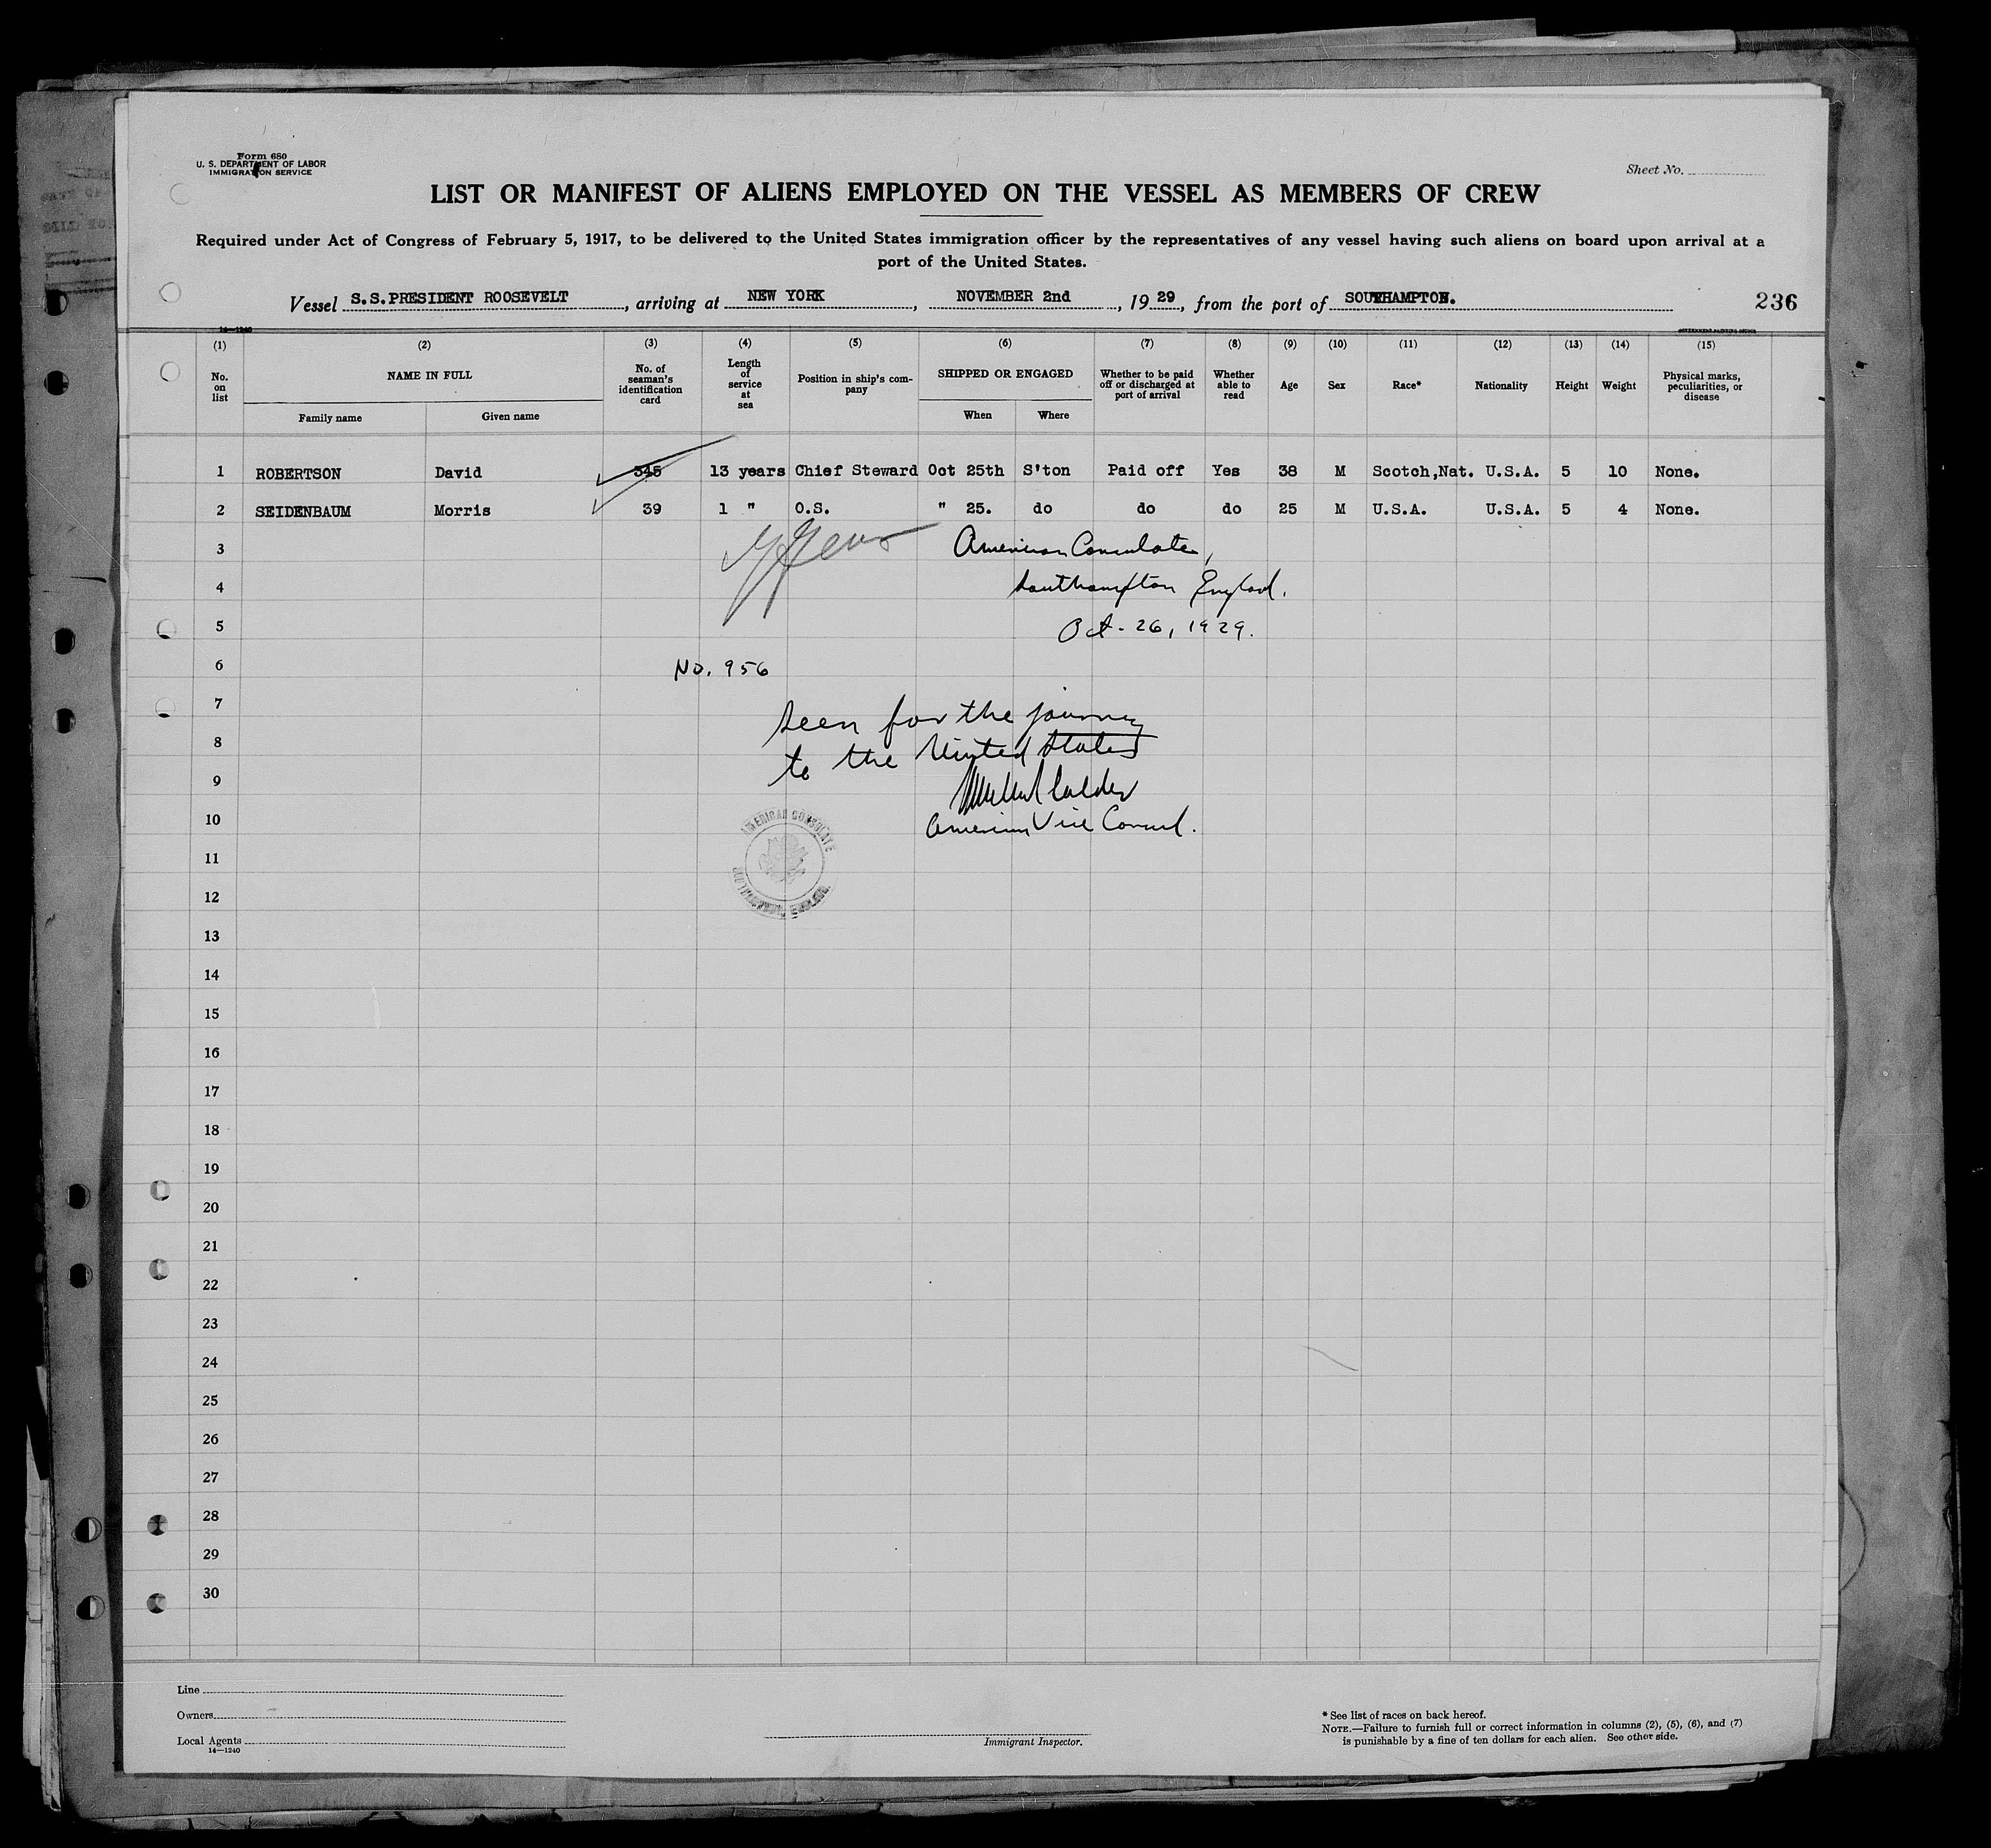 Form 680
U. S. DEPARTMENT OF LABOR
IMMIGRATION SERVICE
Sheet No.
LIST OR MANIFEST OF ALIENS EMPLOYED ON THE VESSEL AS MEMBERS OF CREW
Required under Act of Congress of February 5, 1917, to be delivered to the United States immigration officer by the representatives of any vessel having such aliens on board upon arrival at a
port of the United States.
Vessel S.S.PRESIDENT ROOSEVELT, arriving at NEW YORK, NOVEMBER 2nd, 19 29, from the port of SOUTHAMPTON. 236
14—1240 GOVERNMENT PRINTING OFFICE
(1) (2) (3) (4) (5) (6) (7) (8) (9) (10) (11) (12) (13) (14) (15)
No. on list NAME IN FULL Family name Given name No. of seaman's identification card Length of service at sea Position in ship's company SHIPPED OR ENGAGED When Where Whether to be paid off or discharged at port of arrival Whether able to read Age Sex Race* Nationality Height Weight Physical marks, peculiarities, or disease
1 ROBERTSON David 345 13 years Chief Steward Oct 25th S'ton Paid off Yes 38 M Scotch,Nat. U.S.A. 5 10 None.
2 SEIDENBAUM Morris 39 1 " O.S. " 25. do do do 25 M U.S.A. U.S.A. 5 4 None.
3 American Consulate,
4 Southampton England.
5 Oct. 26, 1929.
6 No. 956
7 Seen for the journey
8 to the United States
9
10 American Vice Consul.
AMERICAN CONSULATE
SOUTHAMPTON, ENGLAND.
11
12
13
14
15
16
17
18
19
20
21
22
23
24
25
26
27
28
29
30
Line
Owners
Local Agents
14—1240
Immigrant Inspector.
* See list of races on back hereof.
NOTE.—Failure to furnish full or correct information in columns (2), (5), (6), and (7)
is punishable by a fine of ten dollars for each alien. See other side.